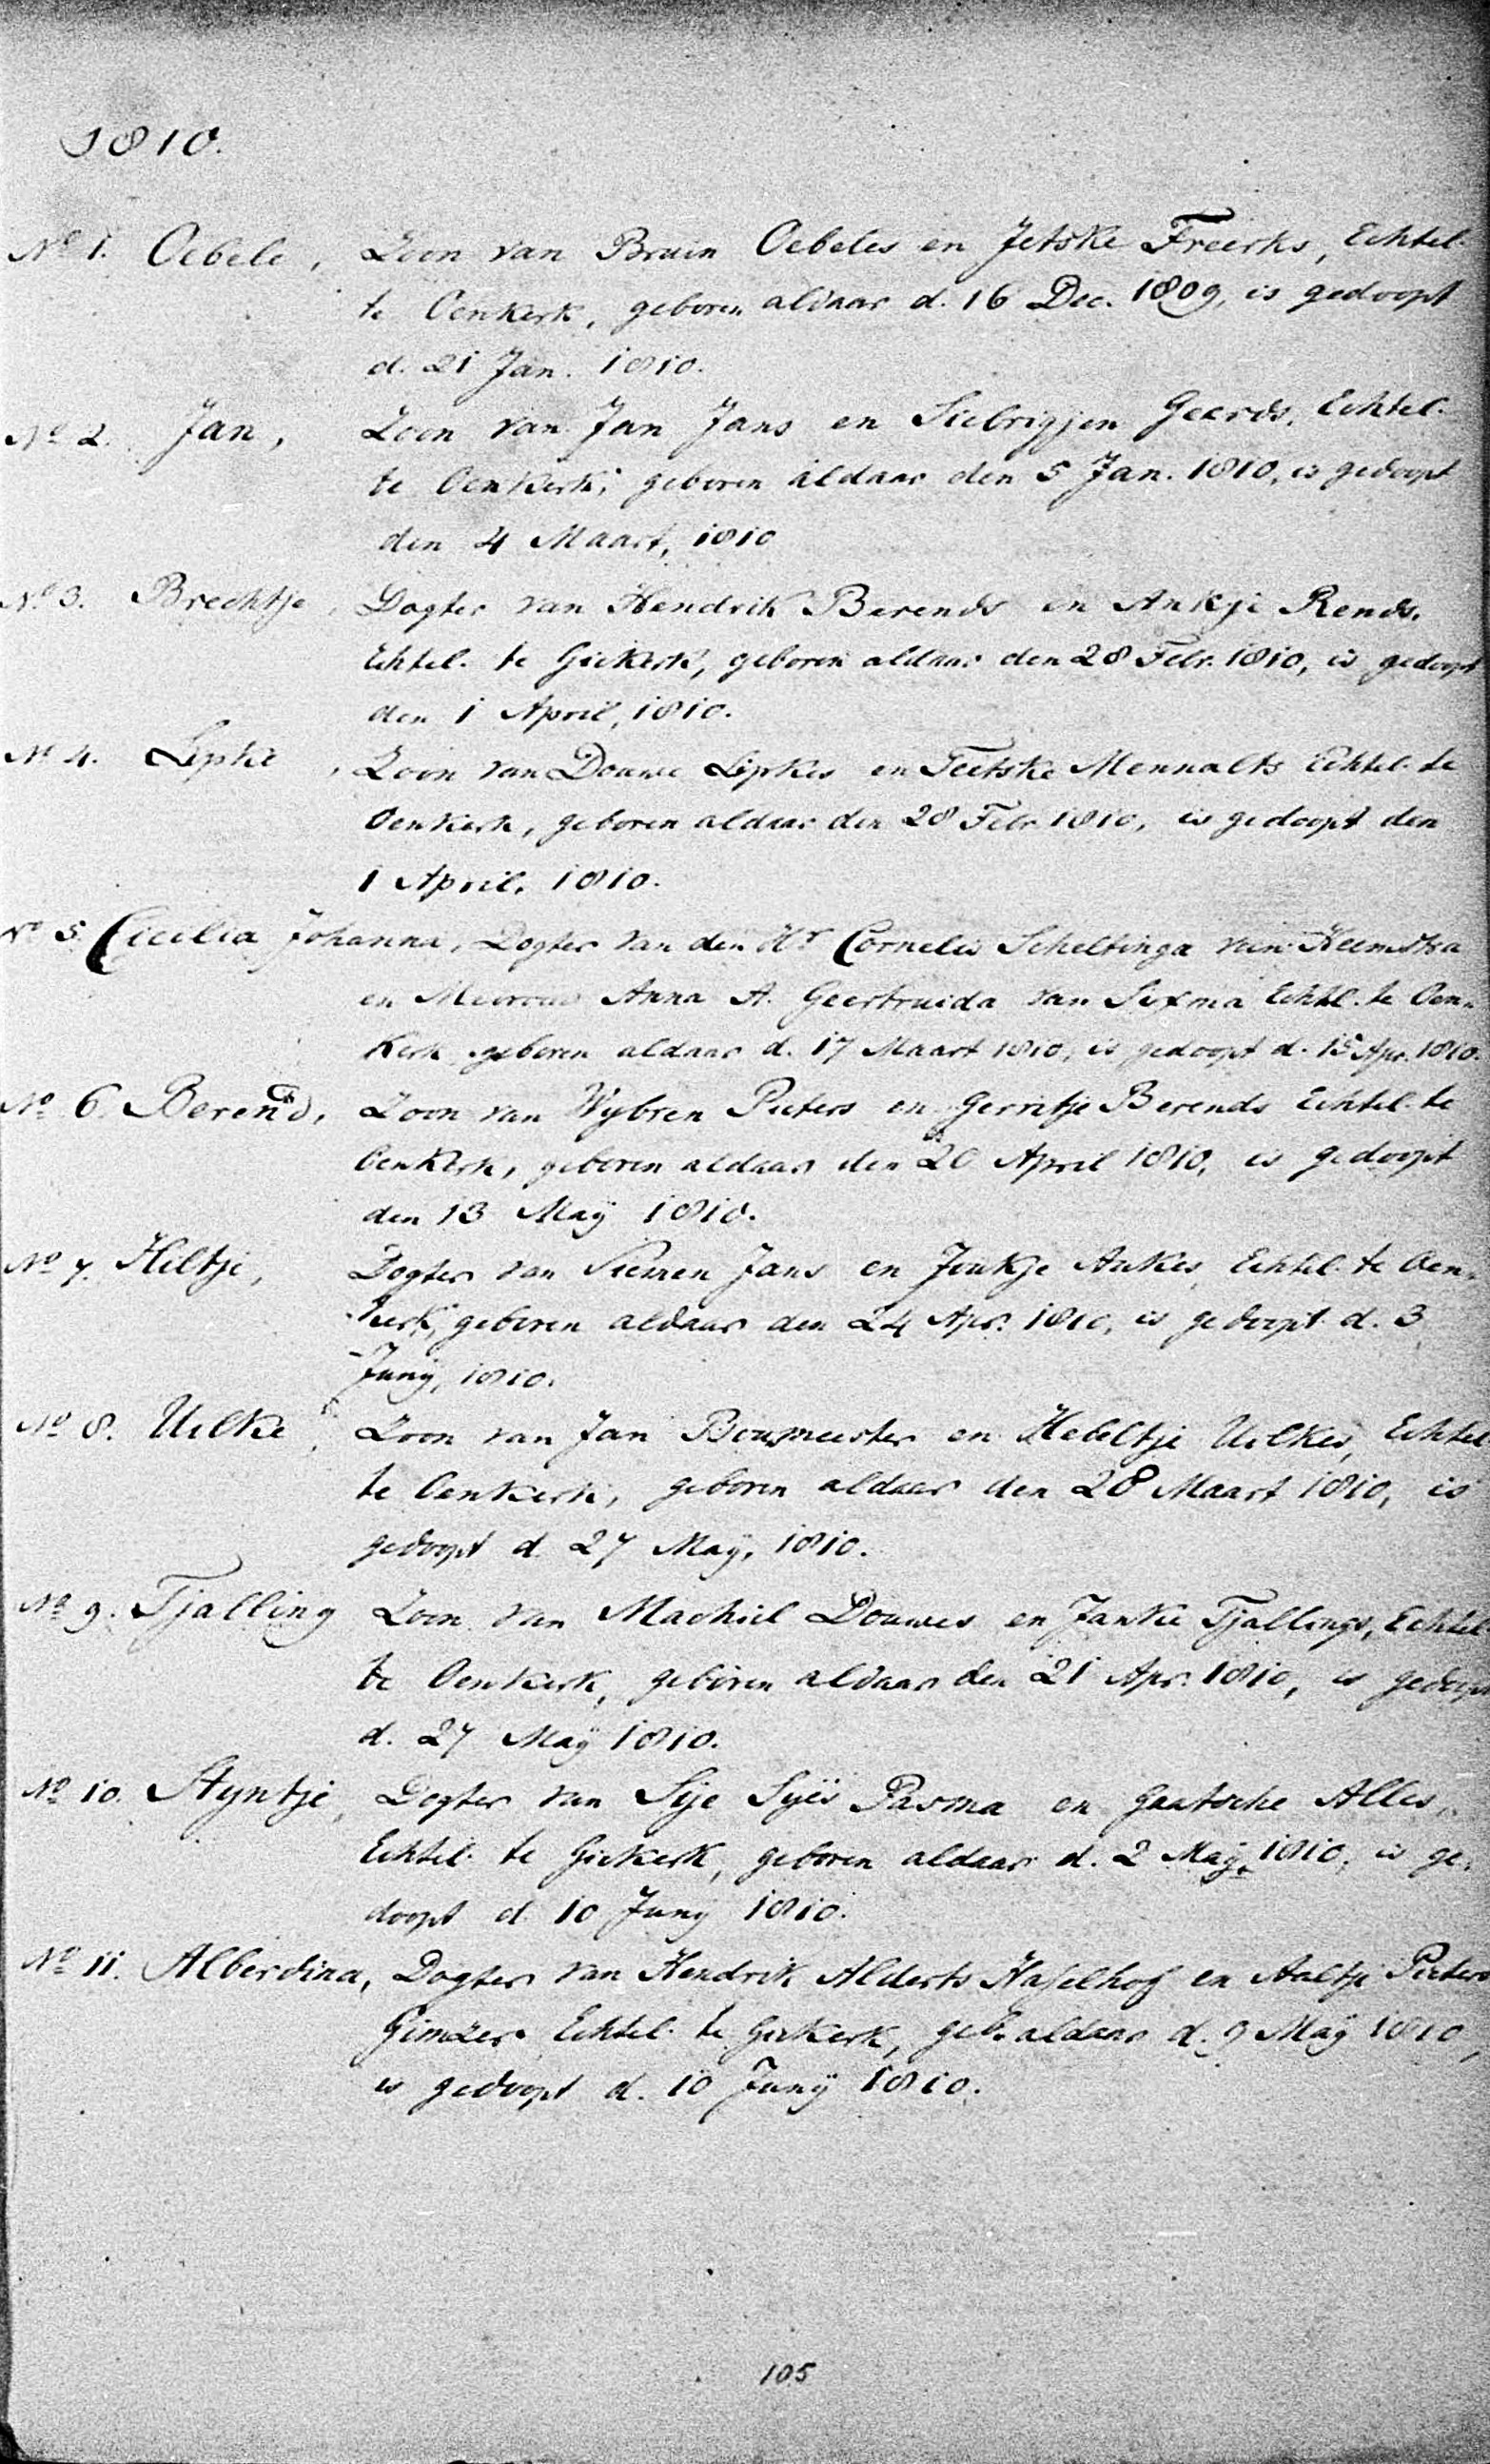 1810.
No 1. Oebele, Zoon van Bruin Oebeles en Jetske Freerks, Echtel.
te Oenkerk, geboren aldaar d. 16 Dec. 1809, is gedoopt
d. 21 Jan. 1810.
No 2. Jan, Zoon van Jan Jans en Siebrigjen Geerds, Echtel.
te Oenkerk, geboren aldaar den 5 Jan. 1810, is gedoopt
den 4 Maart, 1810
No 3. Brechtje, Dogter van Hendrik Berends en Ankje Rends.
Echtel. te Giekerk, geboren aldaar den 28 Febr. 1810, is gedoopt
den 1 April, 1810.
No 4. Lipke, Zoon van Douwe Lipkes en Teetske Mennalts Echtel. te
Oenkerk, geboren aldaar den 28 Febr 1810, is gedoopt den
1 April, 1810.
No 5. Cicilia Johanna, Dogter van den Hr Cornelis Scheltinga van Heemstra
en Mevrouw Anna A. Geertruida van Sixma Echtl. te Oen-
kerk geboren aldaar d. 17 Maart 1810, is gedoopt d. 15 Apr. 1810.
No 6. Berend, Zoon van Wybren Pieters en Gerritje Berends Echtel. te
Oenkerk, geboren aldaar den 20 April 1810, is gedoopt
den 13 Maÿ 1810.
No 7. Hiltje, Dogter van Siemen Jans en Joukje Ankes, Echtel. te Oen-
kerk, geboren aldaar den 24 Apr. 1810, is gedoopt d. 3
Junÿ, 1810.
No 8. Uilke, Zoon van Jan Bouwmeester en Hebeltje Uilkes, Echtel.
te Oenkerk, geboren aldaar den 28 Maart 1810, is
gedoopt d. 27 Maÿ, 1810.
No 9. Tjalling Zoon van Machiel Douwes en Janke Tjallings, Echtel.
te Oenkerk, geboren aldaar den 21 Apr. 1810, is gedoopt
d. 27 Maÿ 1810.
No 10. Styntje, Dogter van Sije Sijes Pasma en Gaatsche Alles,
Echtel. te Giekerk, geboren aldaar d. 2 Maÿ, 1810, is ge-
doopt d. 10 Juny 1810.
No 11. Alberdina, Dogter van Hendrik Alderts Hasselhof en Aaltje Pieters
Gimzer Echtel. te Giekerk, geb. aldaar d. 9 Maÿ 1810,
is gedoopt d. 10 Junÿ 1810.
105